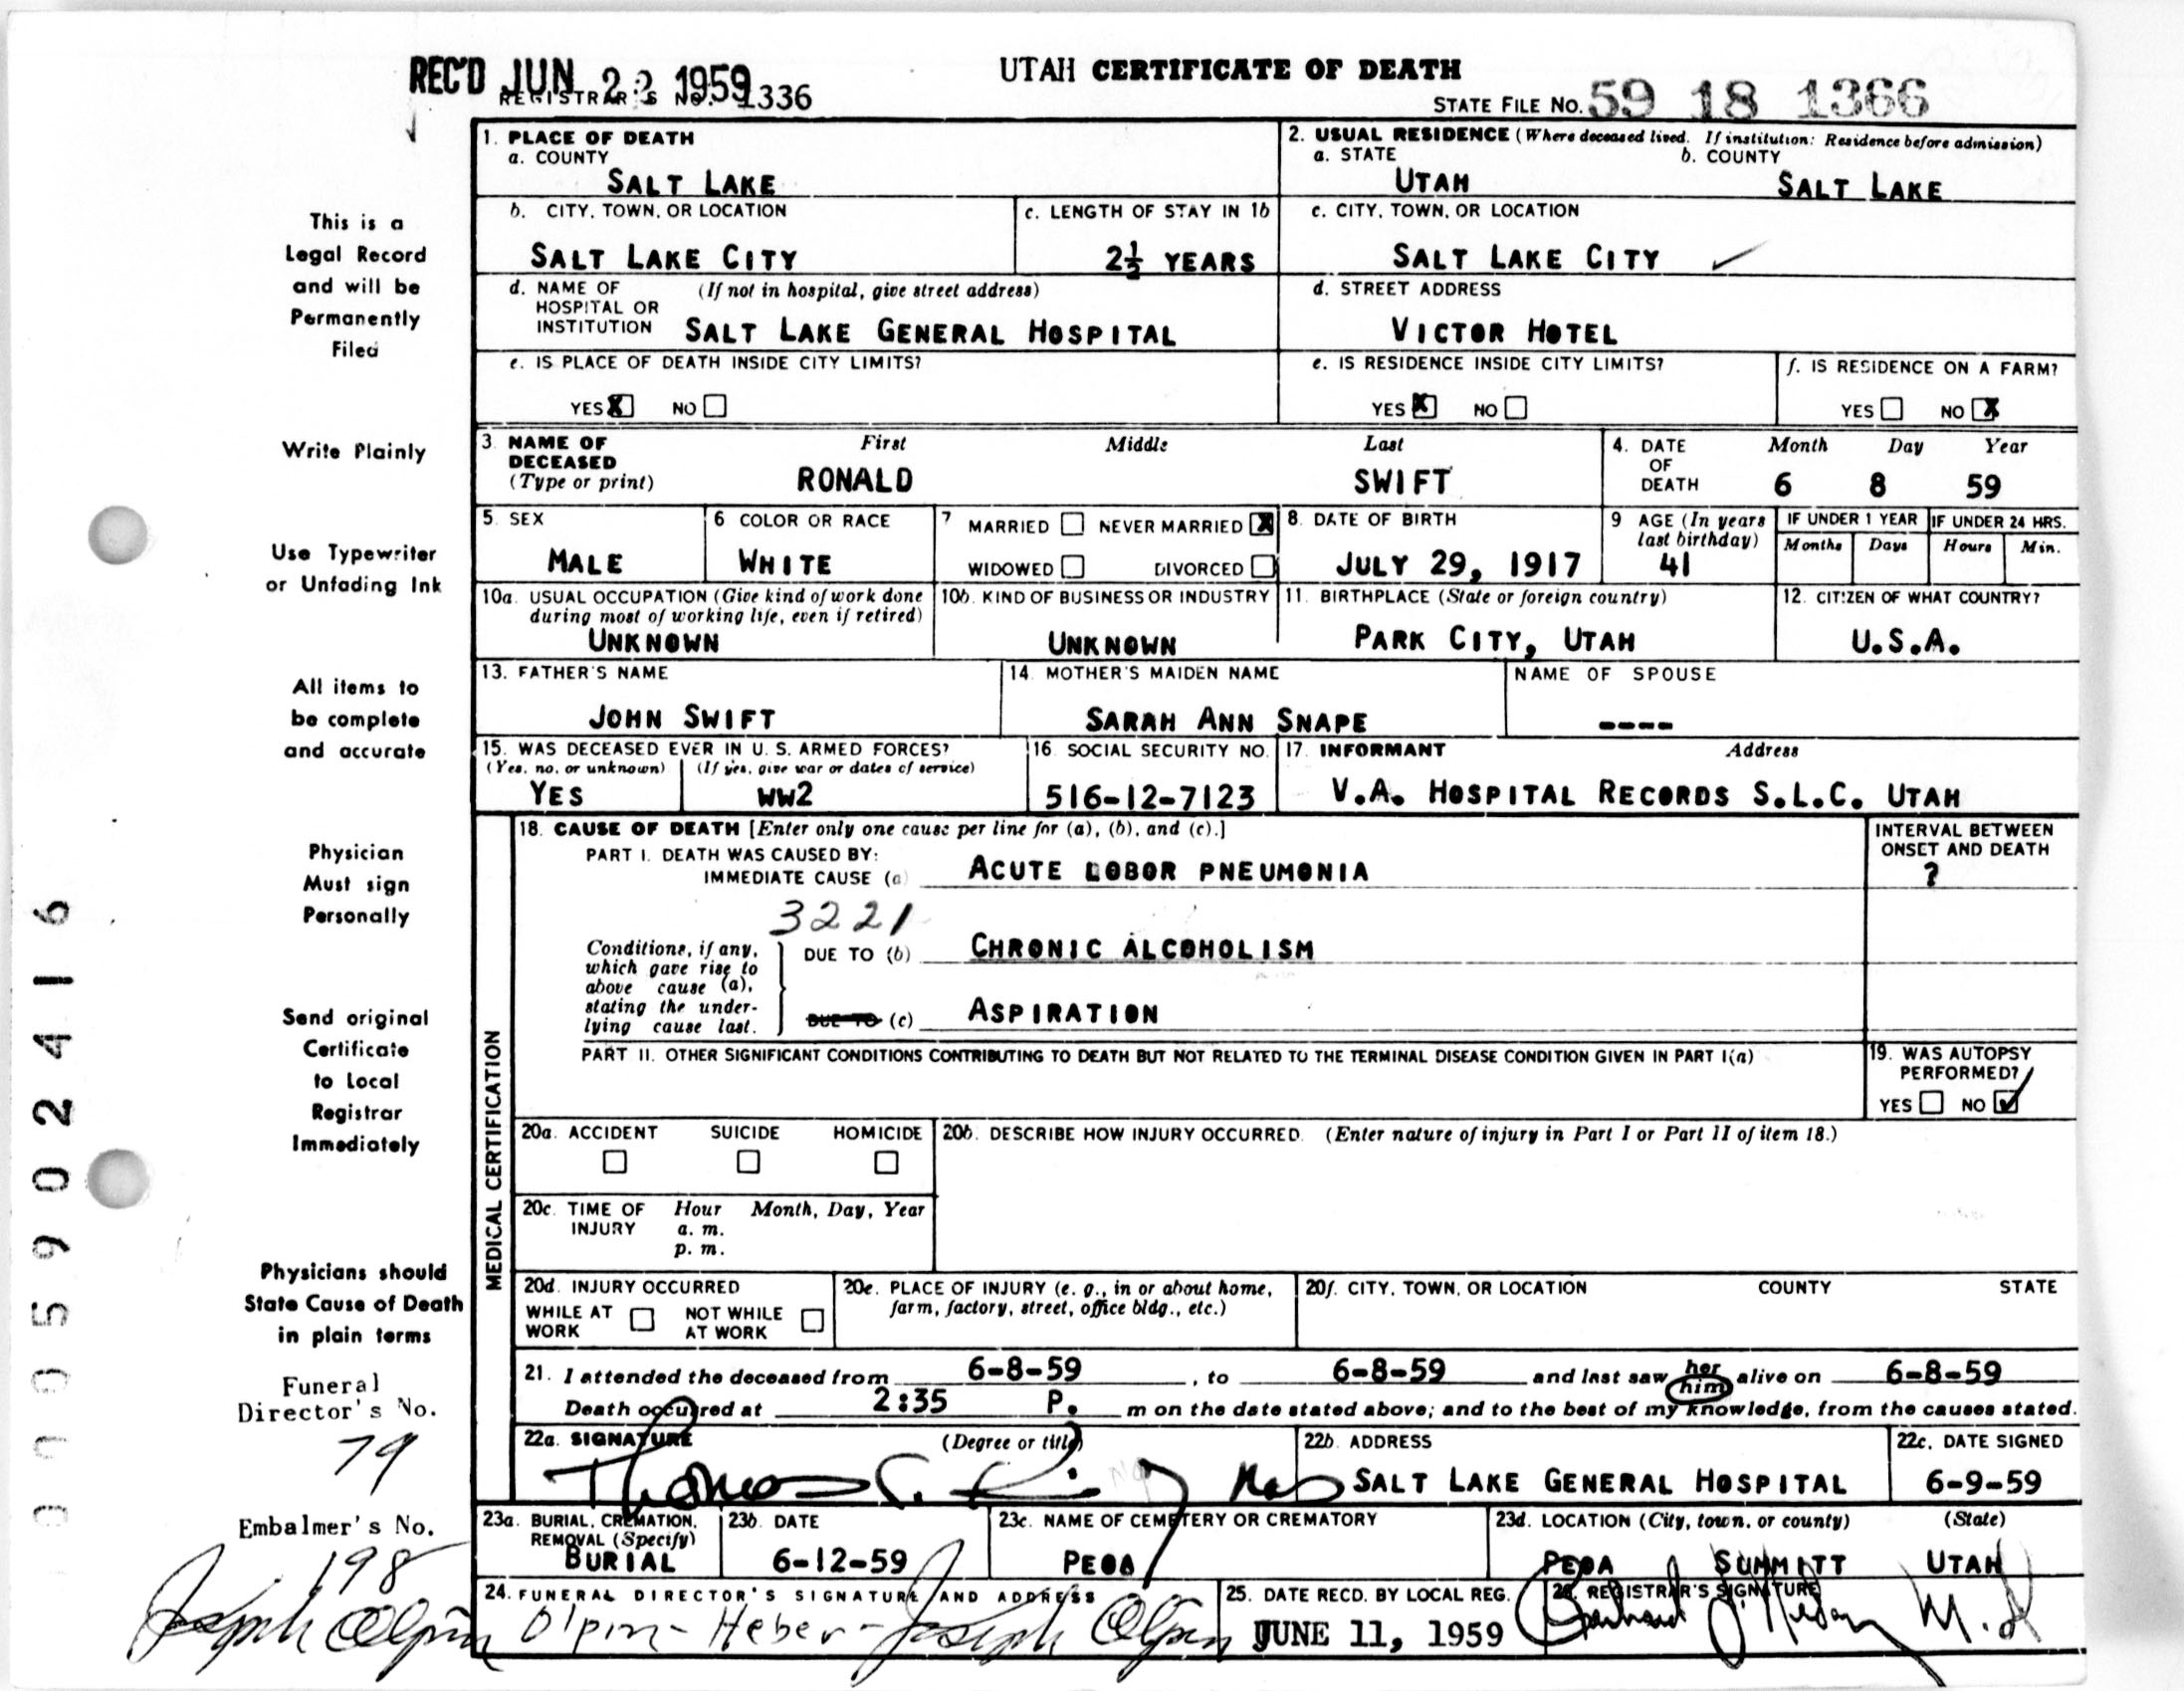 REC'D JUN 22 1959
REGISTRAR'S NO. 1336
UTAH CERTIFICATE OF DEATH
STATE FILE No. 59 18 1366
This is a
Legal Record
and will be
Permanently
Filed
Write Plainly
Use Typewriter
or Unfading Ink
All items to
be complete
and accurate
Physician
Must sign
Personally
Send original
Certificate
to Local
Registrar
Immediately
Physicians should
State Cause of Death
in plain terms
Funeral
Director's No.
79
Embalmer's No.
198
Joseph Olpin
005902416
1. PLACE OF DEATH
a. COUNTY
SALT LAKE
2. USUAL RESIDENCE (Where deceased lived. If institution: Residence before admission)
a. STATE b. COUNTY
UTAH SALT LAKE
b. CITY, TOWN, OR LOCATION
SALT LAKE CITY
c. LENGTH OF STAY IN 1b
2½ YEARS
c. CITY, TOWN, OR LOCATION
SALT LAKE CITY ✓
d. NAME OF (If not in hospital, give street address)
HOSPITAL OR
INSTITUTION SALT LAKE GENERAL HOSPITAL
d. STREET ADDRESS
VICTOR HOTEL
e. IS PLACE OF DEATH INSIDE CITY LIMITS?
YES X NO
e. IS RESIDENCE INSIDE CITY LIMITS?
YES X NO
f. IS RESIDENCE ON A FARM?
YES NO X
3. NAME OF DECEASED (Type or print)
First Middle Last
RONALD SWIFT
4. DATE OF DEATH
Month Day Year
6 8 59
5. SEX
MALE
6 COLOR OR RACE
WHITE
7 MARRIED NEVER MARRIED X
WIDOWED DIVORCED
8. DATE OF BIRTH
JULY 29, 1917
9 AGE (In years
last birthday)
41
IF UNDER 1 YEAR
Months Days
IF UNDER 24 HRS.
Hours Min.
10a. USUAL OCCUPATION (Give kind of work done
during most of working life, even if retired)
UNKNOWN
10b. KIND OF BUSINESS OR INDUSTRY
UNKNOWN
11. BIRTHPLACE (State or foreign country)
PARK CITY, UTAH
12. CITIZEN OF WHAT COUNTRY?
U.S.A.
13. FATHER'S NAME
JOHN SWIFT
14. MOTHER'S MAIDEN NAME
SARAH ANN SNAPE
NAME OF SPOUSE
----
15. WAS DECEASED EVER IN U. S. ARMED FORCES?
(Yes, no, or unknown) (If yes, give war or dates of service)
YES WW2
16. SOCIAL SECURITY NO.
516-12-7123
17. INFORMANT Address
V.A. HOSPITAL RECORDS S.L.C. UTAH
MEDICAL CERTIFICATION
18. CAUSE OF DEATH [Enter only one cause per line for (a), (b), and (c).]
PART I. DEATH WAS CAUSED BY:
IMMEDIATE CAUSE (a) ACUTE LOBOR PNEUMONIA
INTERVAL BETWEEN
ONSET AND DEATH
?
3221
Conditions, if any,
which gave rise to
above cause (a),
stating the under-
lying cause last.
DUE TO (b) CHRONIC ALCOHOLISM
DUE TO (c) ASPIRATION
PART II. OTHER SIGNIFICANT CONDITIONS CONTRIBUTING TO DEATH BUT NOT RELATED TO THE TERMINAL DISEASE CONDITION GIVEN IN PART I(a)
19. WAS AUTOPSY
PERFORMED?
YES NO ✓
20a. ACCIDENT SUICIDE HOMICIDE
20b. DESCRIBE HOW INJURY OCCURRED. (Enter nature of injury in Part I or Part II of item 18.)
20c. TIME OF INJURY
Hour Month, Day, Year
a. m.
p. m.
20d. INJURY OCCURRED
WHILE AT WORK NOT WHILE AT WORK
20e. PLACE OF INJURY (e. g., in or about home,
farm, factory, street, office bldg., etc.)
20f. CITY, TOWN, OR LOCATION COUNTY STATE
21. I attended the deceased from 6-8-59, to 6-8-59 and last saw her him alive on 6-8-59
Death occurred at 2:35 P. m on the date stated above; and to the best of my knowledge, from the causes stated.
22a. SIGNATURE (Degree or title)
Thomas
22b. ADDRESS
SALT LAKE GENERAL HOSPITAL
22c. DATE SIGNED
6-9-59
23a. BURIAL, CREMATION,
REMOVAL (Specify)
BURIAL
23b. DATE
6-12-59
23c. NAME OF CEMETERY OR CREMATORY
PEOA
23d. LOCATION (City, town, or county) (State)
PEOA SUMMITT UTAH
24. FUNERAL DIRECTOR'S SIGNATURE AND ADDRESS
Olpin - Heber - Joseph Olpin
25. DATE RECD. BY LOCAL REG.
JUNE 11, 1959
26. REGISTRAR'S SIGNATURE
M.D